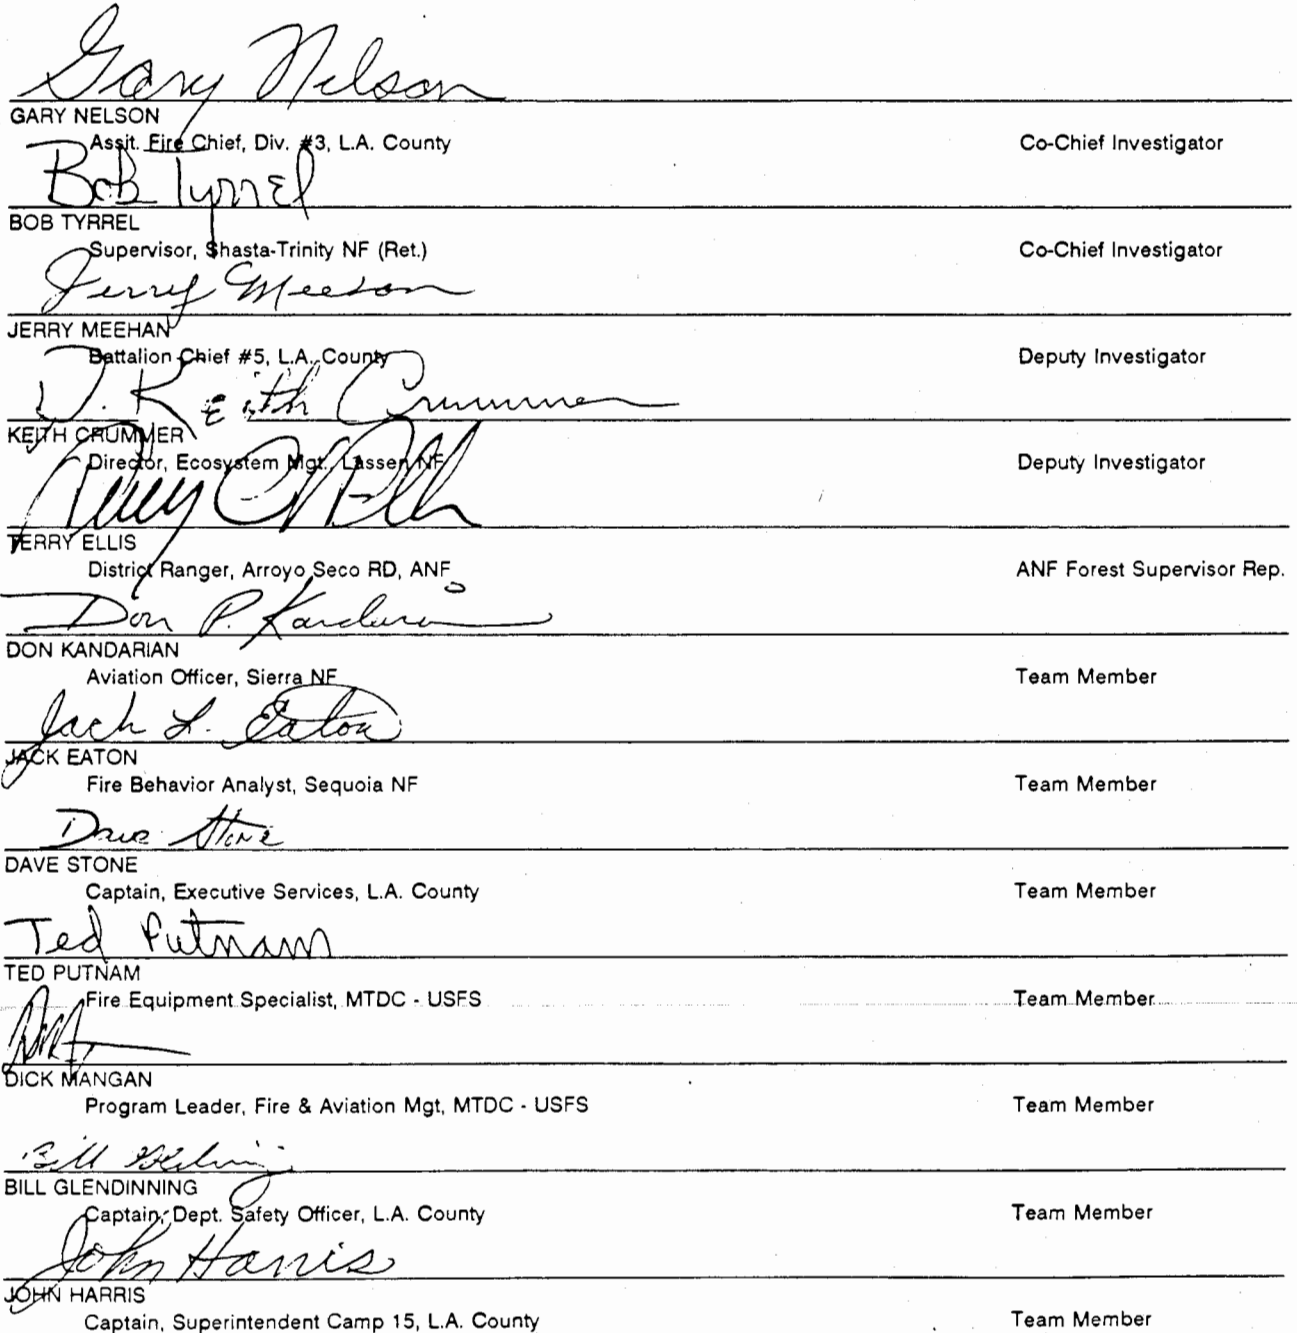 Gary Nelson
GARY NELSON
Assit. Fire Chief, Div. #3, L.A. County Co-Chief Investigator
Bob Tyrrel
BOB TYRREL
Supervisor, Shasta-Trinity NF (Ret.) Co-Chief Investigator
Jerry Meehan
JERRY MEEHAN
Battalion Chief #5, L.A. County Deputy Investigator
D. Keith Crummer
KEITH CRUMMER
Director, Ecosystem Mgt., Lassen NF Deputy Investigator
Terry
TERRY ELLIS
District Ranger, Arroyo Seco RD, ANF ANF Forest Supervisor Rep.
Don P. Kandarian
DON KANDARIAN
Aviation Officer, Sierra NF Team Member
Jack L. Eaton
JACK EATON
Fire Behavior Analyst, Sequoia NF Team Member
Dave Stone
DAVE STONE
Captain, Executive Services, L.A. County Team Member
Ted Putnam
TED PUTNAM
Fire Equipment Specialist, MTDC - USFS Team Member
DICK MANGAN
Program Leader, Fire & Aviation Mgt, MTDC - USFS Team Member
Bill
BILL GLENDINNING
Captain, Dept. Safety Officer, L.A. County Team Member
John Harris
JOHN HARRIS
Captain, Superintendent Camp 15, L.A. County Team Member